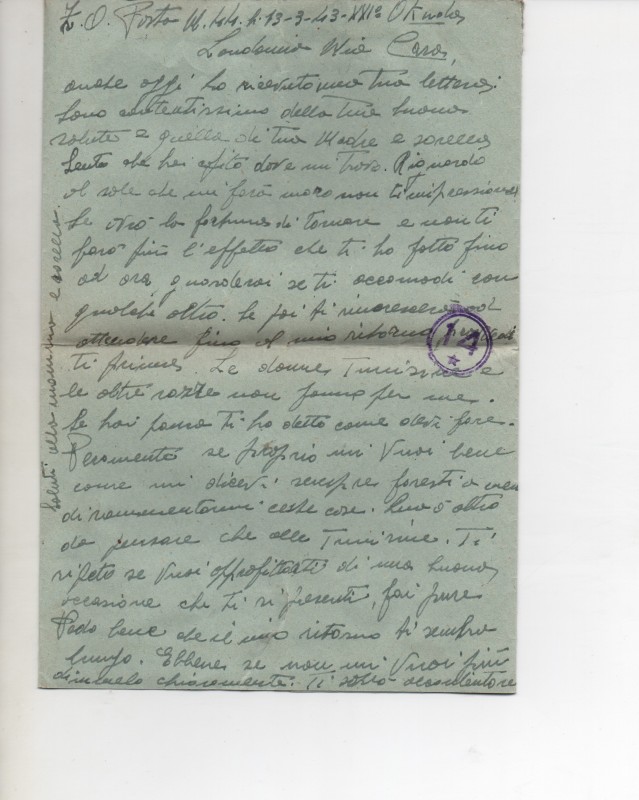 Z. O. Posta M. 44. h. 13-3-43-XXIº
Landomia Mia Cara,
anche oggi ho ricevuto una tua lettera;
sono contentissimo della tua buona
salute e quella di tua Madre e sorella
Sento che hai capito dove mi trovo. Riguardo
al sole che mi farà moro non ti impressionare
Se avrò la fortuna di tornare e non ti
farò più l'effetto che ti ho fatto fino
ad ora, guarderai se ti accomodi con
qualche altro. Se poi ti rincrescerà ad
attendere fino al mio ritorno,
ti prima. Le donne Tunisine e
le altre razze non fanno per me.
Se hai paura ti ho detto come devi fare.
Veramente se proprio mi vuoi bene
come mi dicevi sempre faresti a meno
di rammentarmi certe cose. Km ò altro
da pensare che alle Tunisine. Ti
ripeto se vuoi approfittarti di una buona
occasione che ti si presenti, fai pure
Vedo bene che il mio ritorno ti sembra
lungo. Ebbene se non mi vuoi più
dimmelo chiaramente. Ti saprò accontentare
saluti alla mamma e sorella.
14